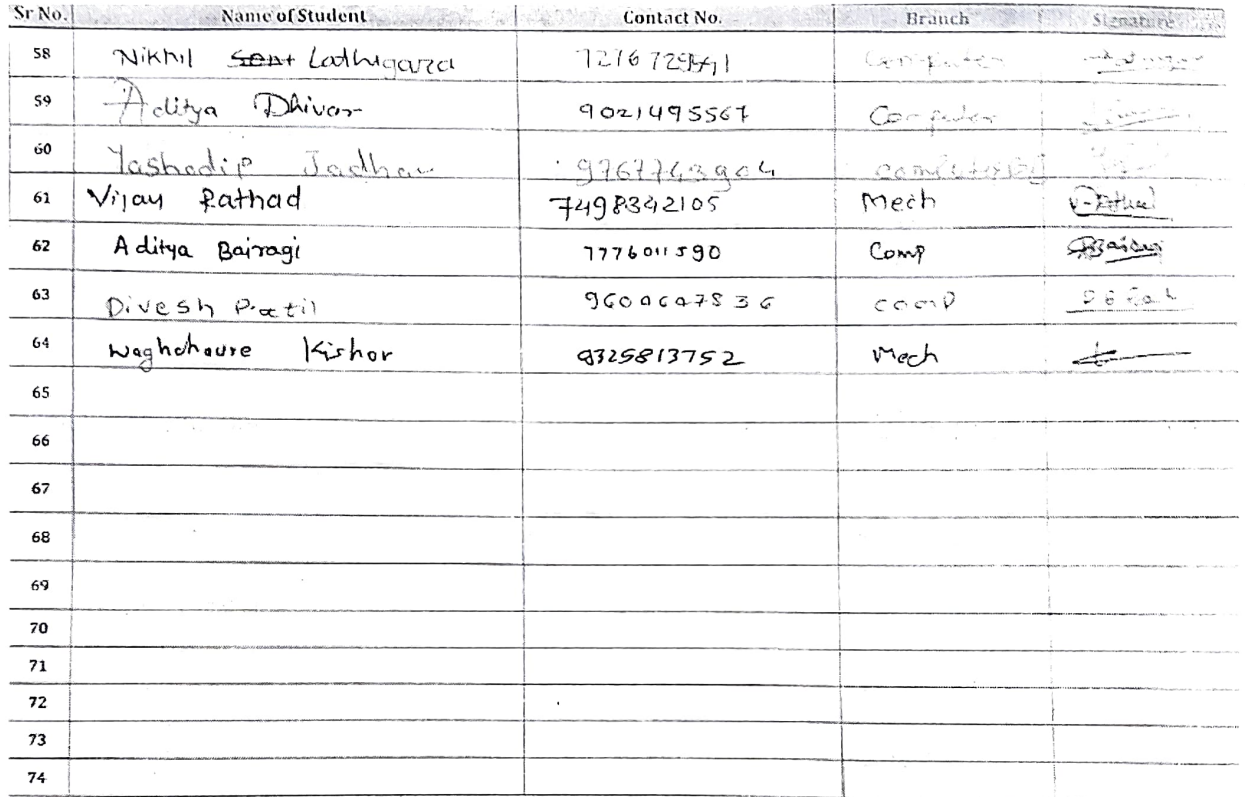 Sr No. Name of Student Contact No. Branch Signature
58 Nikhil Lathigara Computer
59 Aditya Dhivar 9021495567 Computer
60 Yashodip Jadhav 9767743904
61 Vijay Rathod 7498342105 Mech
62 Aditya Bairagi 7776011590 Comp
63 Divesh Patil comp
64 Waghchaure Kishor 9325813752 Mech
65
66
67
68
69
70
71
72
73
74